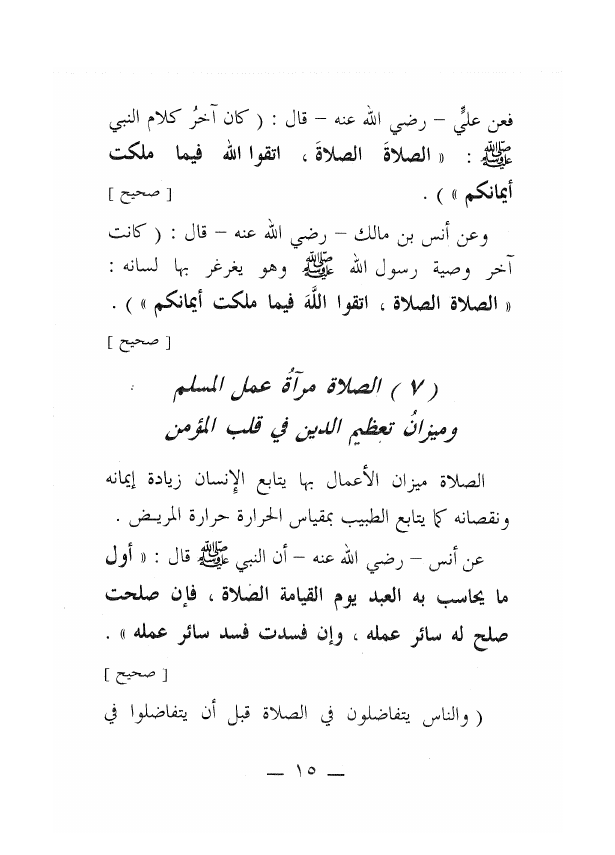 فعن عليٍّ – رضي الله عنه – قال : ( كان آخرُ كلام النبي
ﷺ : « الصلاةَ الصلاةَ ، اتقوا الله فيما ملكت
أيمانكم » ) .
[ صحيح ]
وعن أنس بن مالك – رضي الله عنه – قال : ( كانت
آخر وصية رسول الله ﷺ وهو يغرغر بها لسانه :
« الصلاة الصلاة ، اتقوا اللَّهَ فيما ملكت أيمانكم » ) .
[ صحيح ]
( ٧ ) الصلاة مرآةُ عمل المسلم
وميزانُ تعظيم الدين في قلب المؤمن
الصلاة ميزان الأعمال بها يتابع الإنسان زيادة إيمانه
ونقصانه كما يتابع الطبيب بمقياس الحرارة حرارة المريض .
عن أنس – رضي الله عنه – أن النبي ﷺ قال : « أول
ما يحاسب به العبد يوم القيامة الصلاة ، فإن صلحت
صلح له سائر عمله ، وإن فسدت فسد سائر عمله » .
[ صحيح ]
( والناس يتفاضلون في الصلاة قبل أن يتفاضلوا في
— ١٥ —